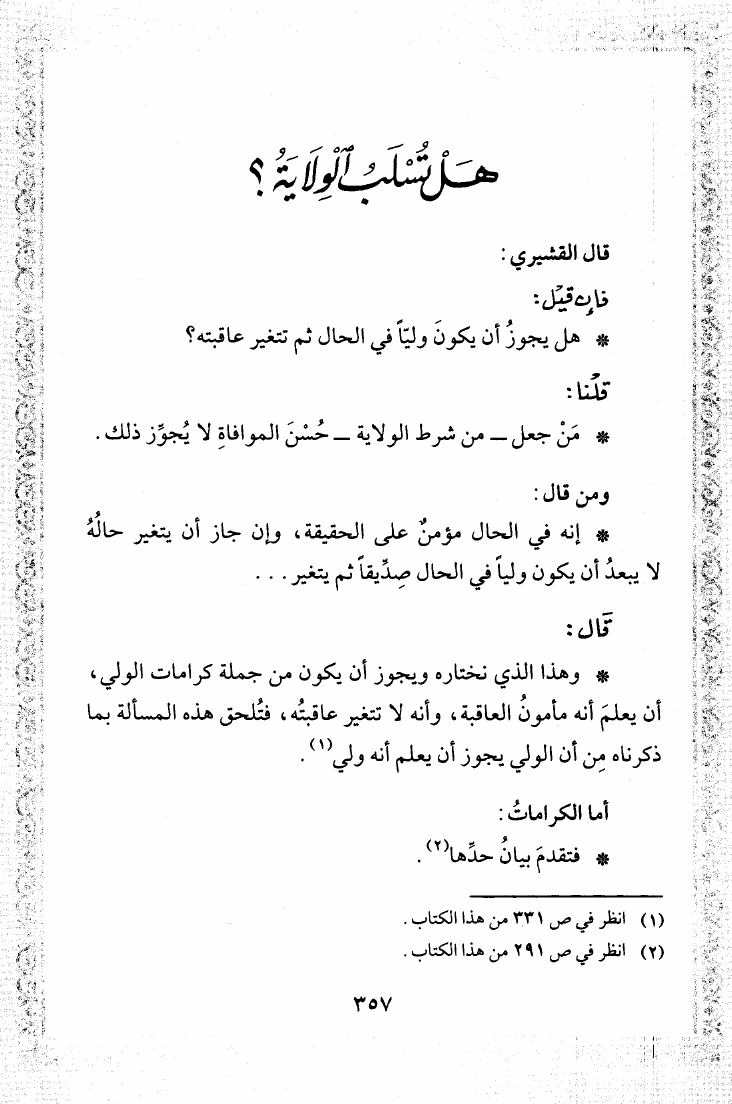 هَلْ تُسْلَبُ ٱلْوِلَايَةُ ؟
قال القشيري :
فإن قيْل :
* هل يجوزُ أن يكونَ وليّاً في الحال ثم تتغير عاقبته؟
قلْنا :
* مَنْ جعل ــ من شرط الولاية ــ حُسْنَ الموافاةِ لا يُجوِّز ذلك .
ومن قال :
* إنه في الحال مؤمنٌ على الحقيقة، وإن جاز أن يتغير حالُهُ
لا يبعدُ أن يكون ولياً في الحال صِدِّيقاً ثم يتغير . . .
قَال :
* وهذا الذي نختاره ويجوز أن يكون من جملة كرامات الولي،
أن يعلمَ أنه مأمونُ العاقبة، وأنه لا تتغير عاقبتُه، فتُلحق هذه المسألة بما
ذكرناه مِن أن الولي يجوز أن يعلم أنه ولي(١) .
أما الكراماتُ :
* فتقدمَ بيانُ حدِّها(٢) .
(١) انظر في ص ٣٣١ من هذا الكتاب .
(٢) انظر في ص ٢٩١ من هذا الكتاب .
٣٥٧